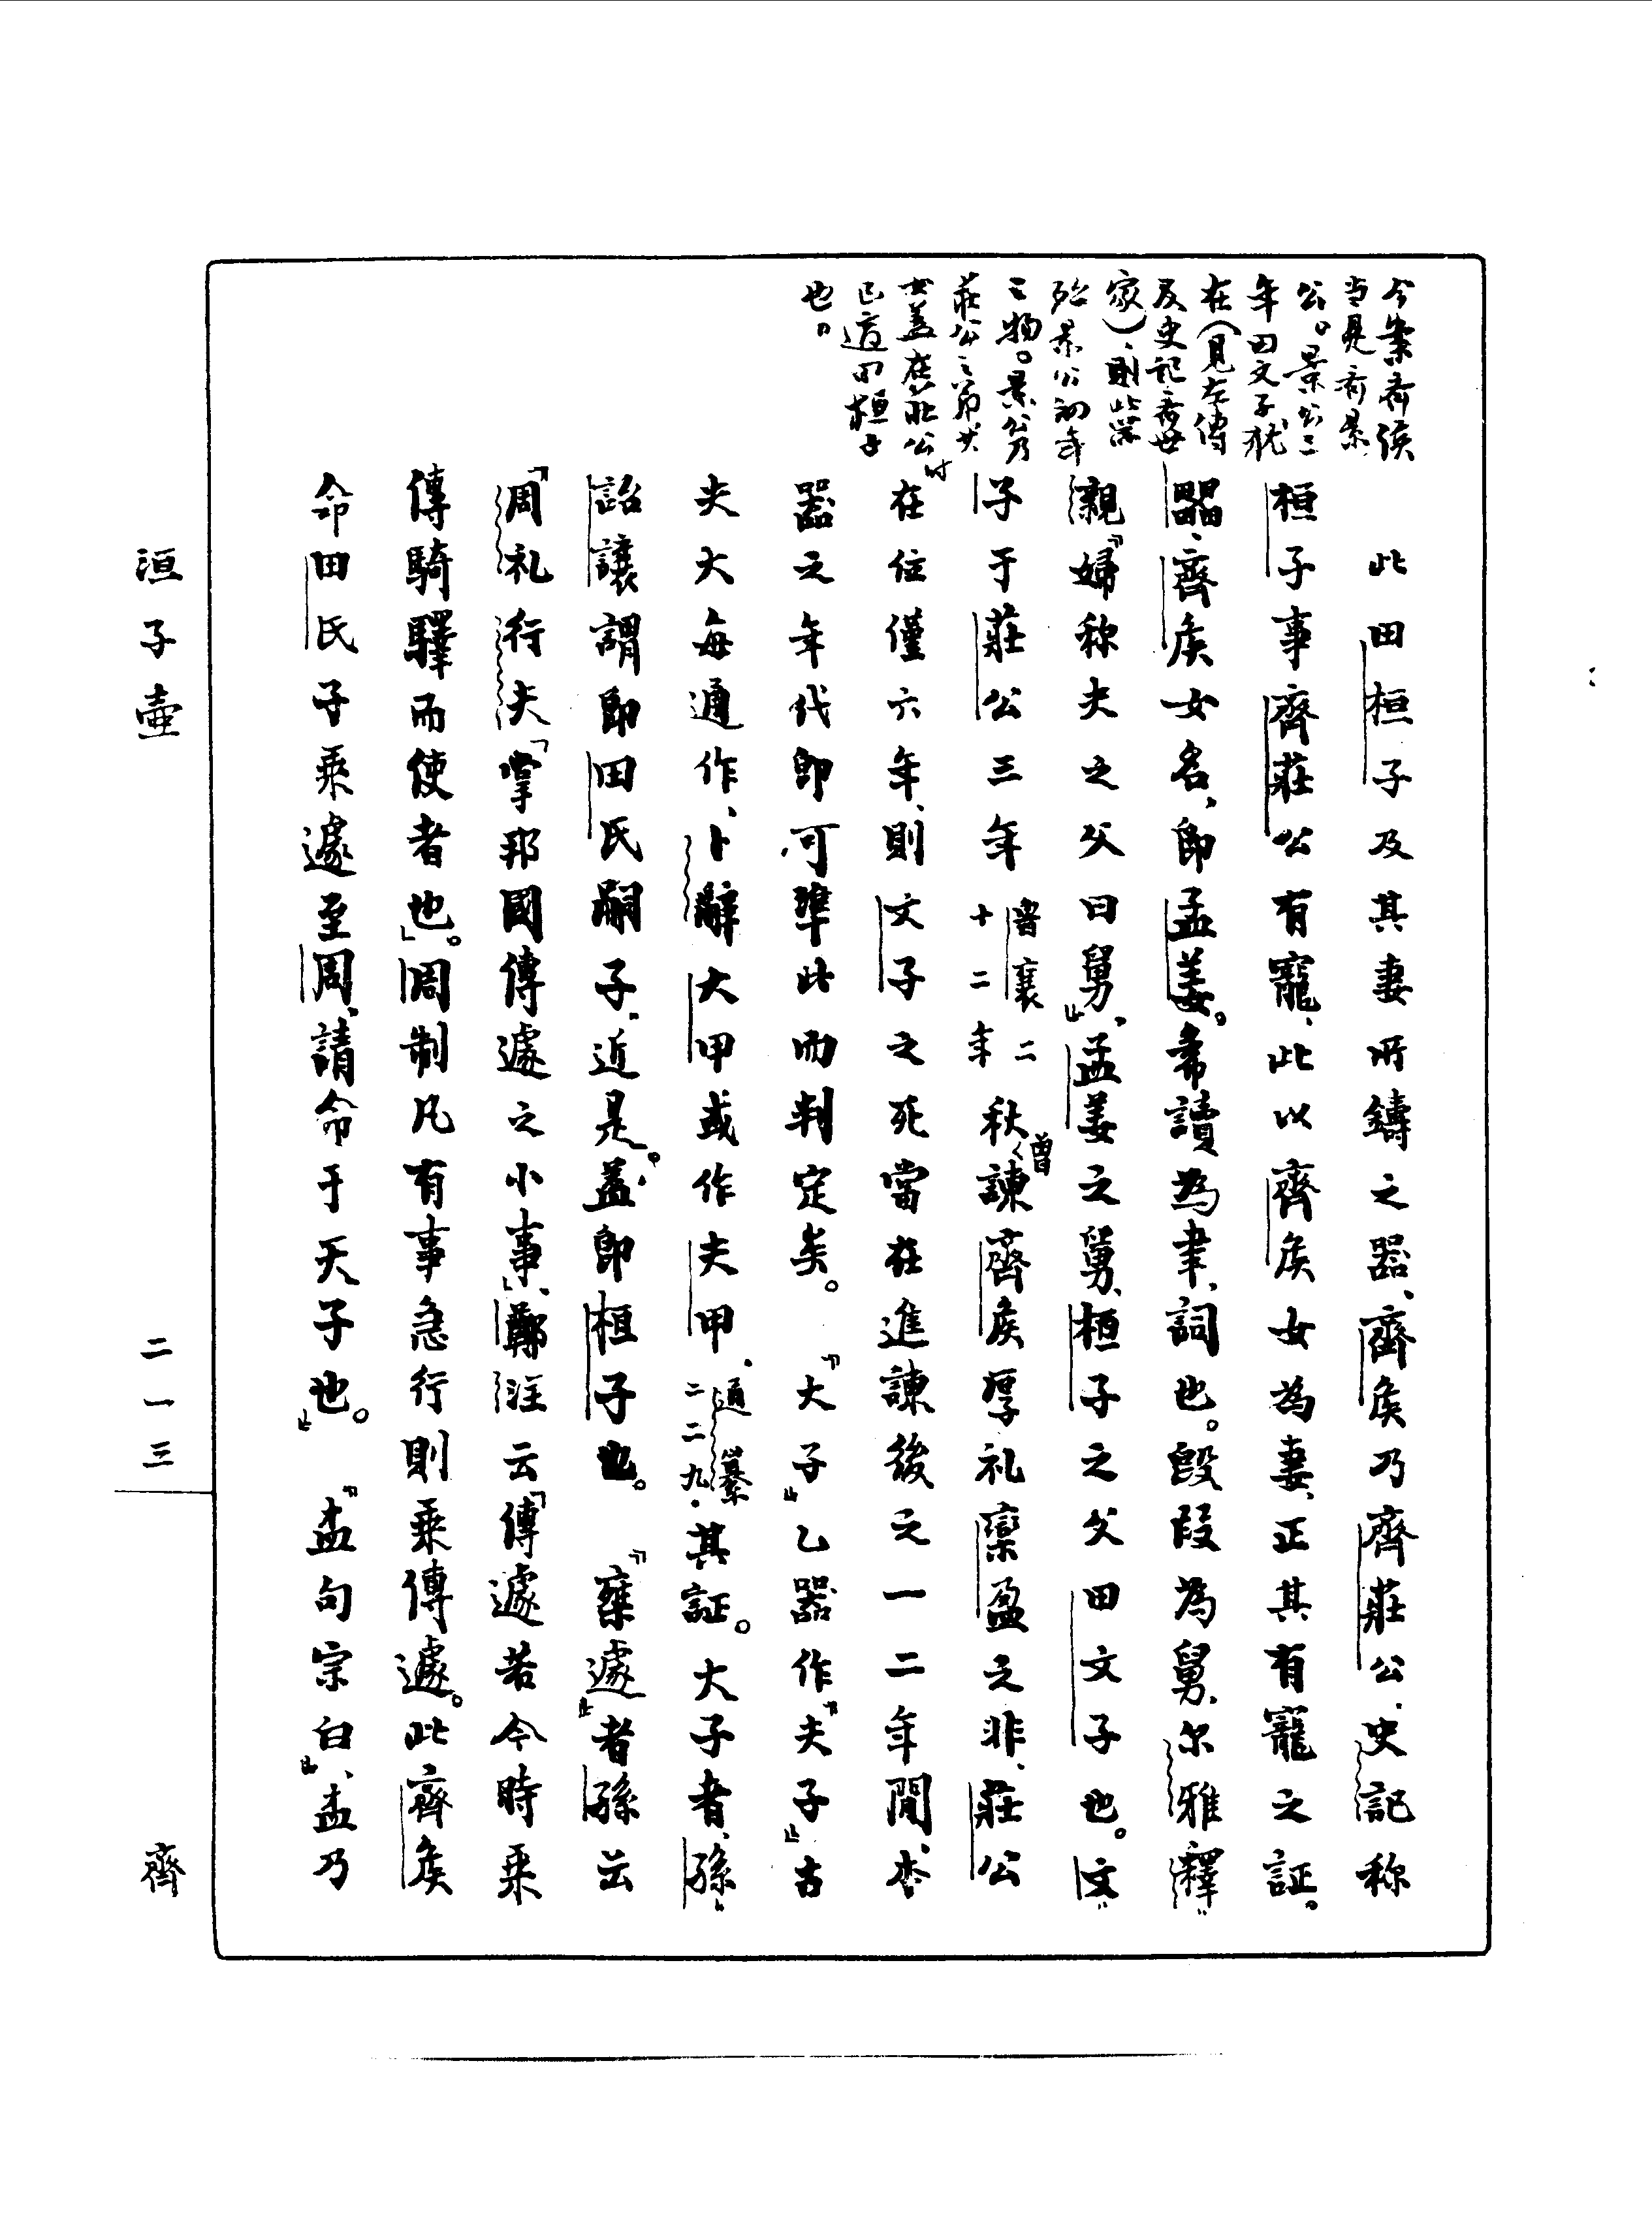 今案齊侯
当是齊景
公。景公三
年田文子猶
在（見左傳
及史記齊世
家），則此器
殆景公初年
之物。景公乃
莊公之弟，其
女蓋在莊公時
已適田桓子
也。
此田桓子及其妻所鑄之器、齊侯乃齊莊公、史記称
桓子事齊莊公有寵、此以齊侯女為妻、正其有寵之証。
器、齊侯女名、即孟姜。希讀為聿、詞也。毁段為舅、尔雅釋
親『婦称夫之父曰舅』、孟姜之舅、桓子之父田文子也。文
子于莊公三年魯襄二十二年秋曾諫齊侯厚礼欒盈之非、莊公
在位僅六年、則文子之死當在進諫後之一二年間、本
器之年代即可準此而判定矣。『大子』乙器作『夫子』古
夫大每通作、卜辭大甲或作夫甲、通纂二二九、其証。大子者、孫
詒讓謂即田氏嗣子、近是。蓋即桓子也。『𠅷遽』者孫云
『周礼行夫「掌邦國傳遽之小事」、鄭注云「傳遽若今時乘
傳騎驛而使者也」。周制凡有事急行則乘傳遽。此齊侯
命田氏子乘遽至周、請命于天子也』。『盍句宗白』、盍乃
洹子壺
二一三
齊